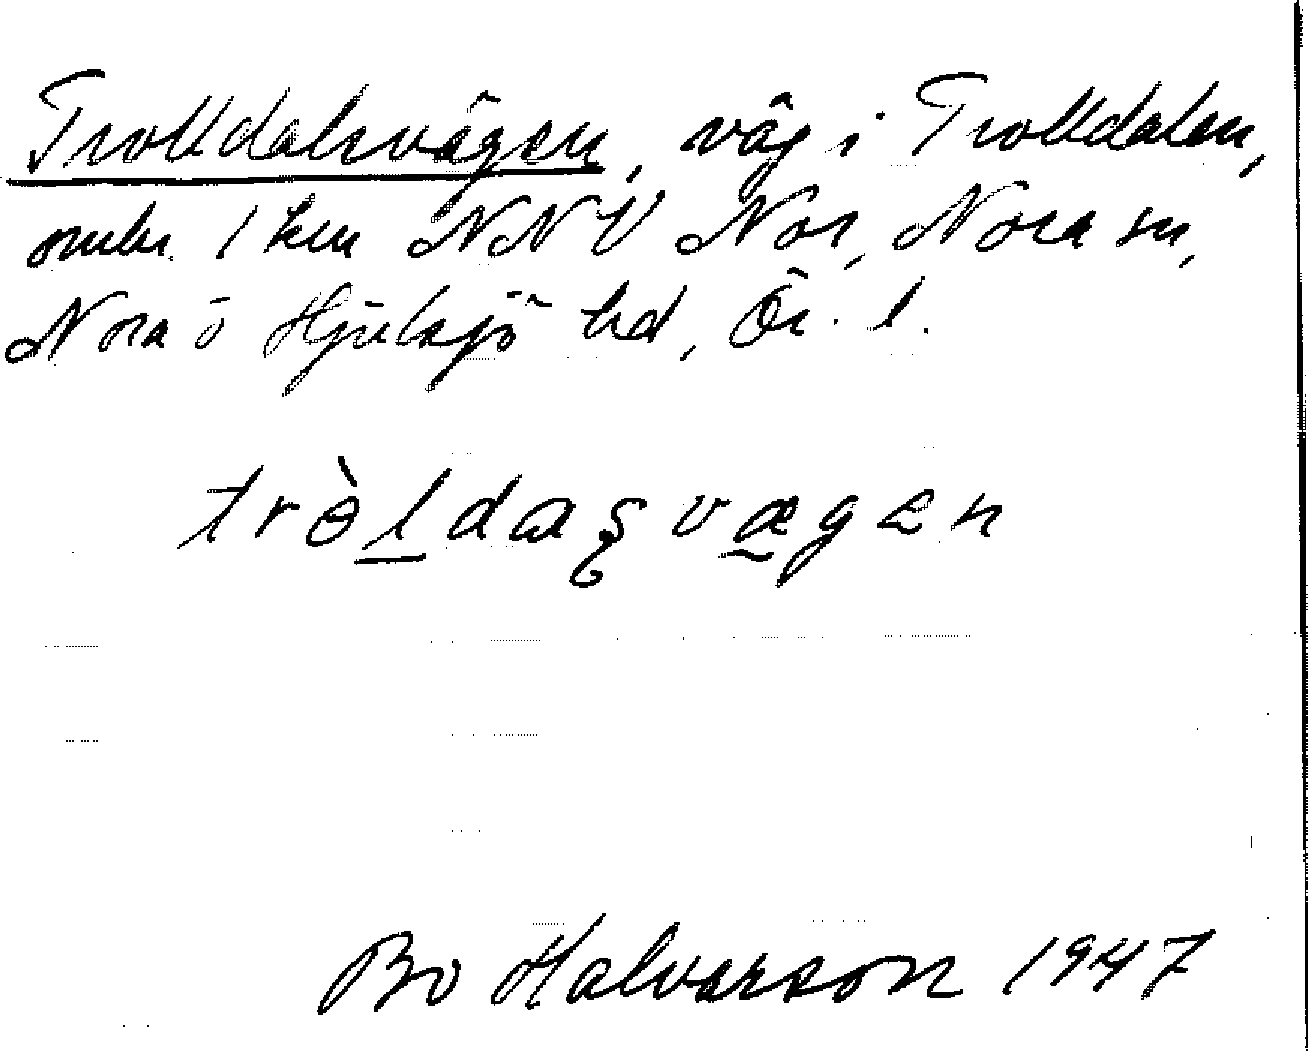 Trolldalsvägen, väg i Trolldalen,
omkr. 1 km NNV Nor, Nora sn,
Nora o Hjulsjö hd, Ör. l.
trɵ̀ldaʂvægen
Bo Halvarson 1947